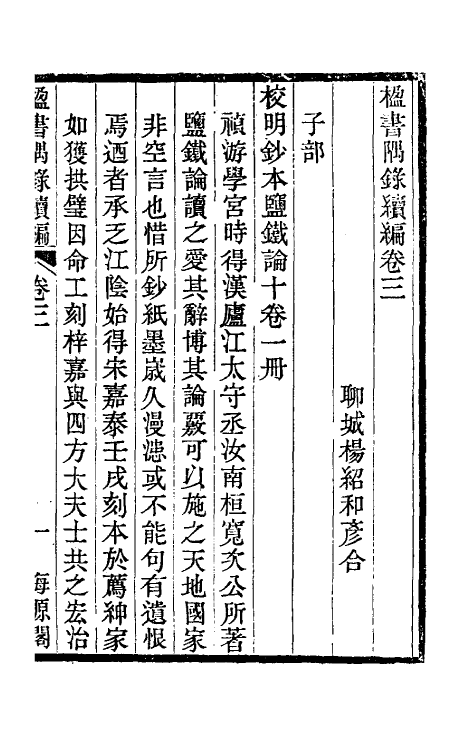 楹書隅錄續編卷三
聊城楊紹和彥合
子部
校明鈔本鹽鐵論十卷一冊
禎游學宮時得漢廬江太守丞汝南桓寬次公所著
鹽鐵論讀之愛其辭博其論覈可以施之天地國家
非空言也惜所鈔紙墨歲久漫漶或不能句有遺恨
焉迺者承乏江陰始得宋嘉泰壬戌刻本於薦紳家
如獲拱璧因命工刻梓嘉與四方大夫士共之宏治
楹書隅錄續編 卷三 一 海源閣